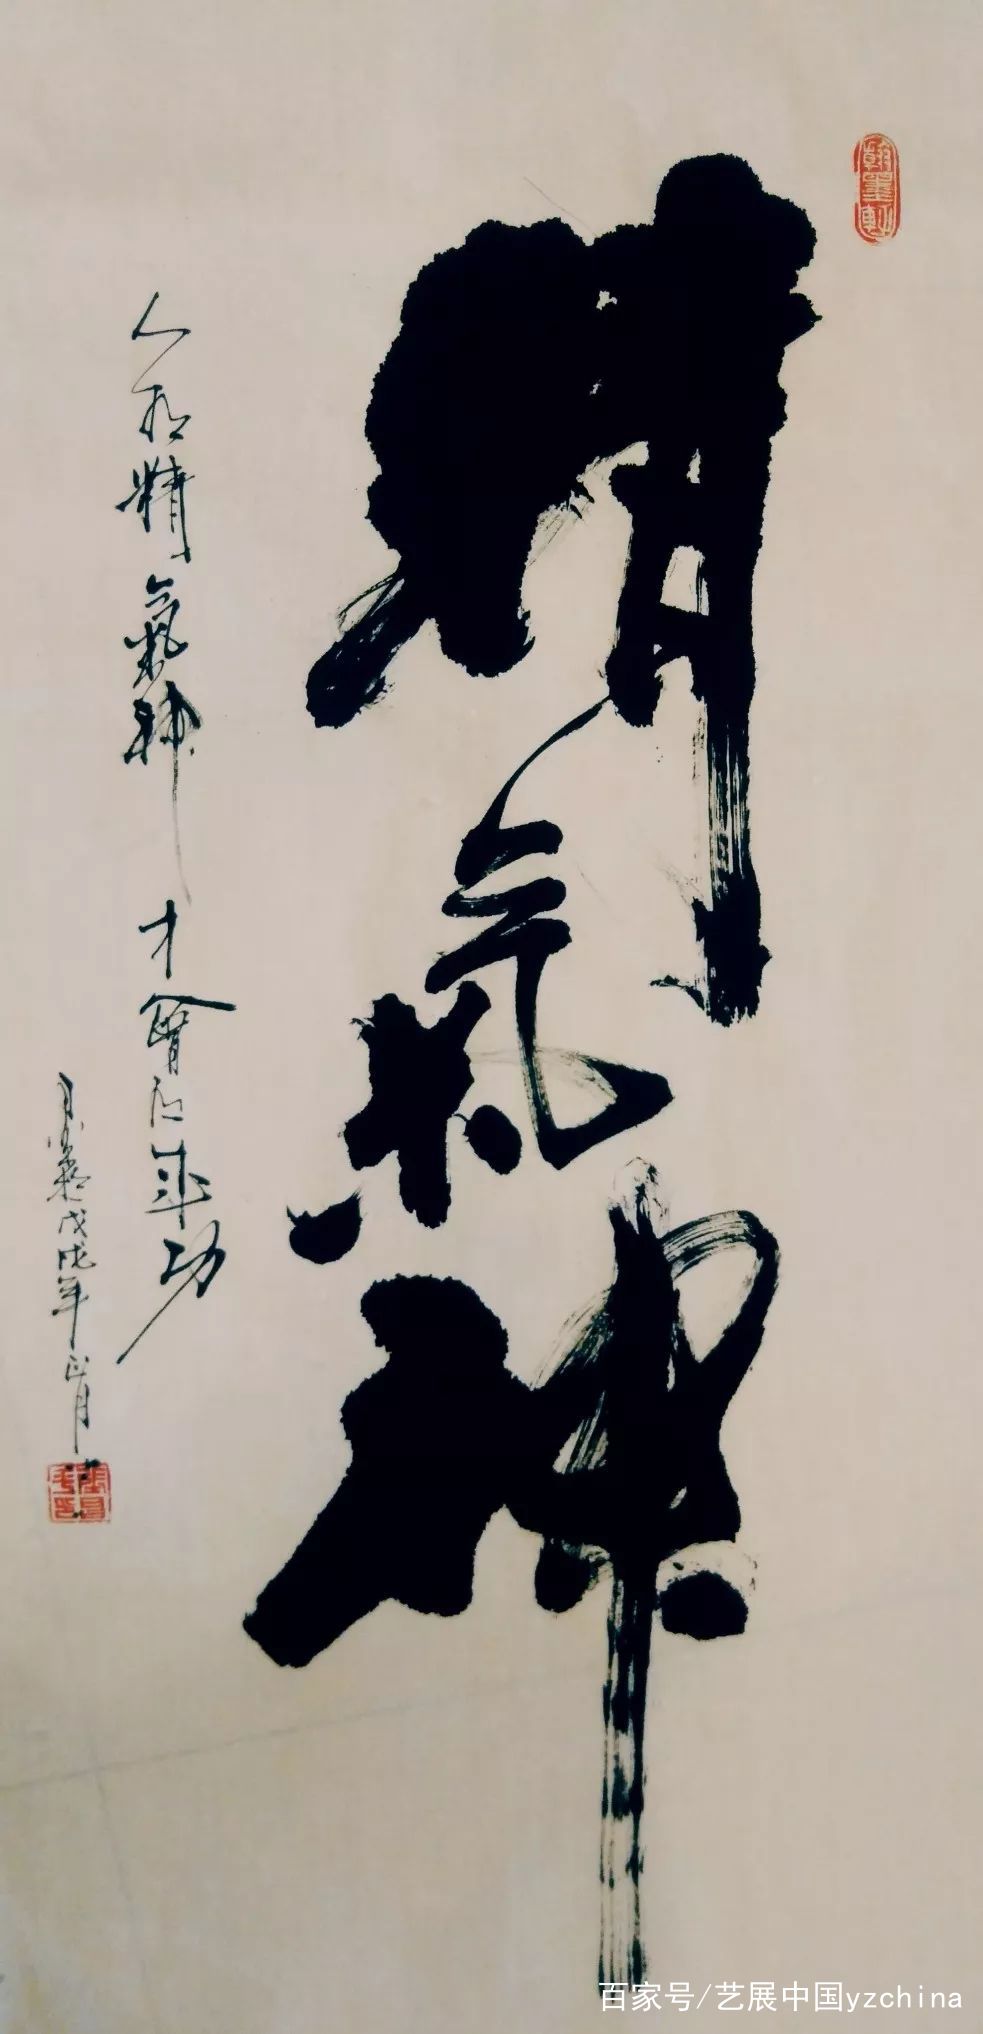 精氣神
人有精氣神才會有成功
戊戌年正月
百家号/艺展中国yzchina